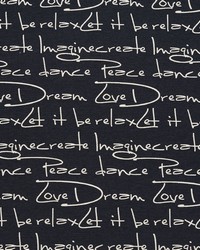 it be relax Let it be relax
create Imagine create Imagine
Peace dance Peace dance
Dream Love Dream
be relax Let it be relax Let it
Imagine create Imagine create
dance Peace dance Peace
Dream Love Dream
it be relax Let it be relax
create Imagine create Imagine
Peace dance Peace dance
Dream Love Dream
be relax Let it be relax Let it